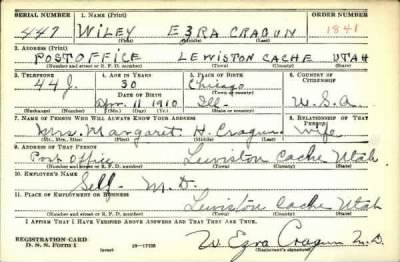 SERIAL NUMBER 1. NAME (Print) ORDER NUMBER
447 WILEY EZRA CRAGUN 1841
(First) (Middle) (Last)
2. ADDRESS (Print)
POST OFFICE LEWISTON CACHE UTAH
(Number and street or R. F. D. number) (Town) (County) (State)
3. TELEPHONE 4. AGE IN YEARS 5. PLACE OF BIRTH 6. COUNTRY OF CITIZENSHIP
44J. 30 Chicago
DATE OF BIRTH (Town or county)
Apr. 11 1910 Ill. U.S.A.
(Exchange) (Number) (Mo.) (Day) (Yr.) (State or country)
7. NAME OF PERSON WHO WILL ALWAYS KNOW YOUR ADDRESS 8. RELATIONSHIP OF THAT PERSON
Mrs. Margaret H. Cragun wife
(Mr., Mrs., Miss) (First) (Middle) (Last)
9. ADDRESS OF THAT PERSON
Post Office Lewiston Cache Utah
(Number and street or R. F. D. number) (Town) (County) (State)
10. EMPLOYER'S NAME
Self M.D.
11. PLACE OF EMPLOYMENT OR BUSINESS
Lewiston Cache Utah
(Number and street or R. F. D. number) (Town) (County) (State)
I AFFIRM THAT I HAVE VERIFIED ABOVE ANSWERS AND THAT THEY ARE TRUE.
REGISTRATION CARD
D. S. S. Form 1 (over) 16—17105 W Ezra Cragun M.D.
(Registrant's signature)